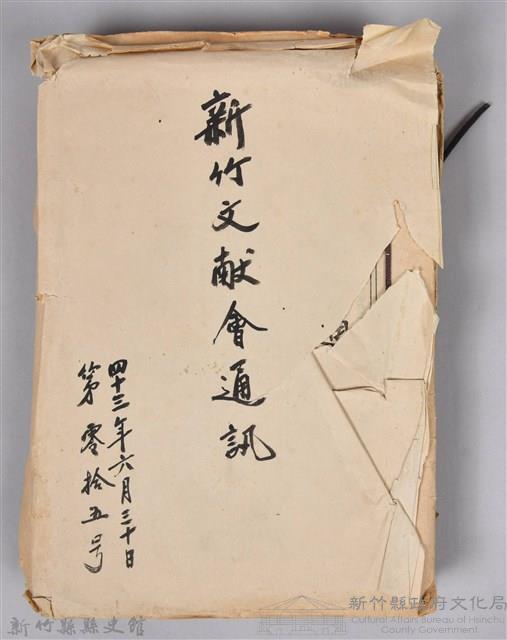 新竹文献會通訊
四十三年六月三十日
第零拾五号
新竹縣縣史館
新竹縣政府文化局
Cultural Affairs Bureau of Hsinchu
County Government